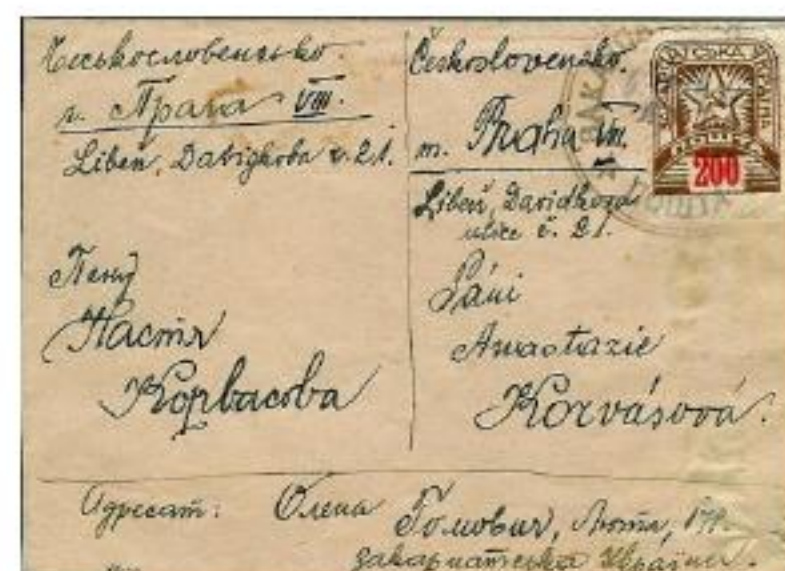 Чеськословенсько.
г. Прага VIII.
Libeň, Davidkova č. 21.
Пані
Настя
Корвасова
Československo.
m. Praha VIII.
Libeň, Davidkova
ulice č. 21.
Páni
Anastazie
Korvásová.
КАРПАТСЬКА УКРАЇНА
ПОШТА
200
Адресат: Олена Голович, Люта, 178.
Закарпатська Україна.